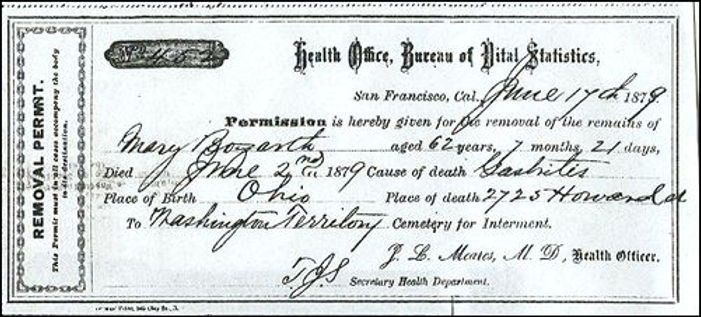 REMOVAL PERMIT.
This Permit must in all cases accompany the body
to its destination.
No. 452
Health Office, Bureau of Vital Statistics,
San Francisco, Cal. June 17th 1879.
Permission is hereby given for the removal of the remains of
Mary Bozarth aged 62 years, 7 months, 21 days,
Died June 2nd 1879 Cause of death Gastrites
Place of Birth Ohio Place of death 2725 Howard st
To Washington Territory Cemetery for Interment.
J. L. Meares, M. D., Health Officer.
T.J.S Secretary Health Department.